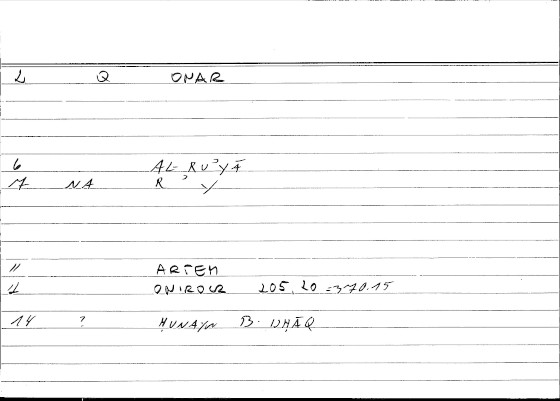 2 Q ONAR
6 AL-RUʾYĀ
7 NA R ʾ Y
11 ARTEM
ONIROCR 205,20 = 370.15
14 ? ḤUNAYN B. ISḤĀQ